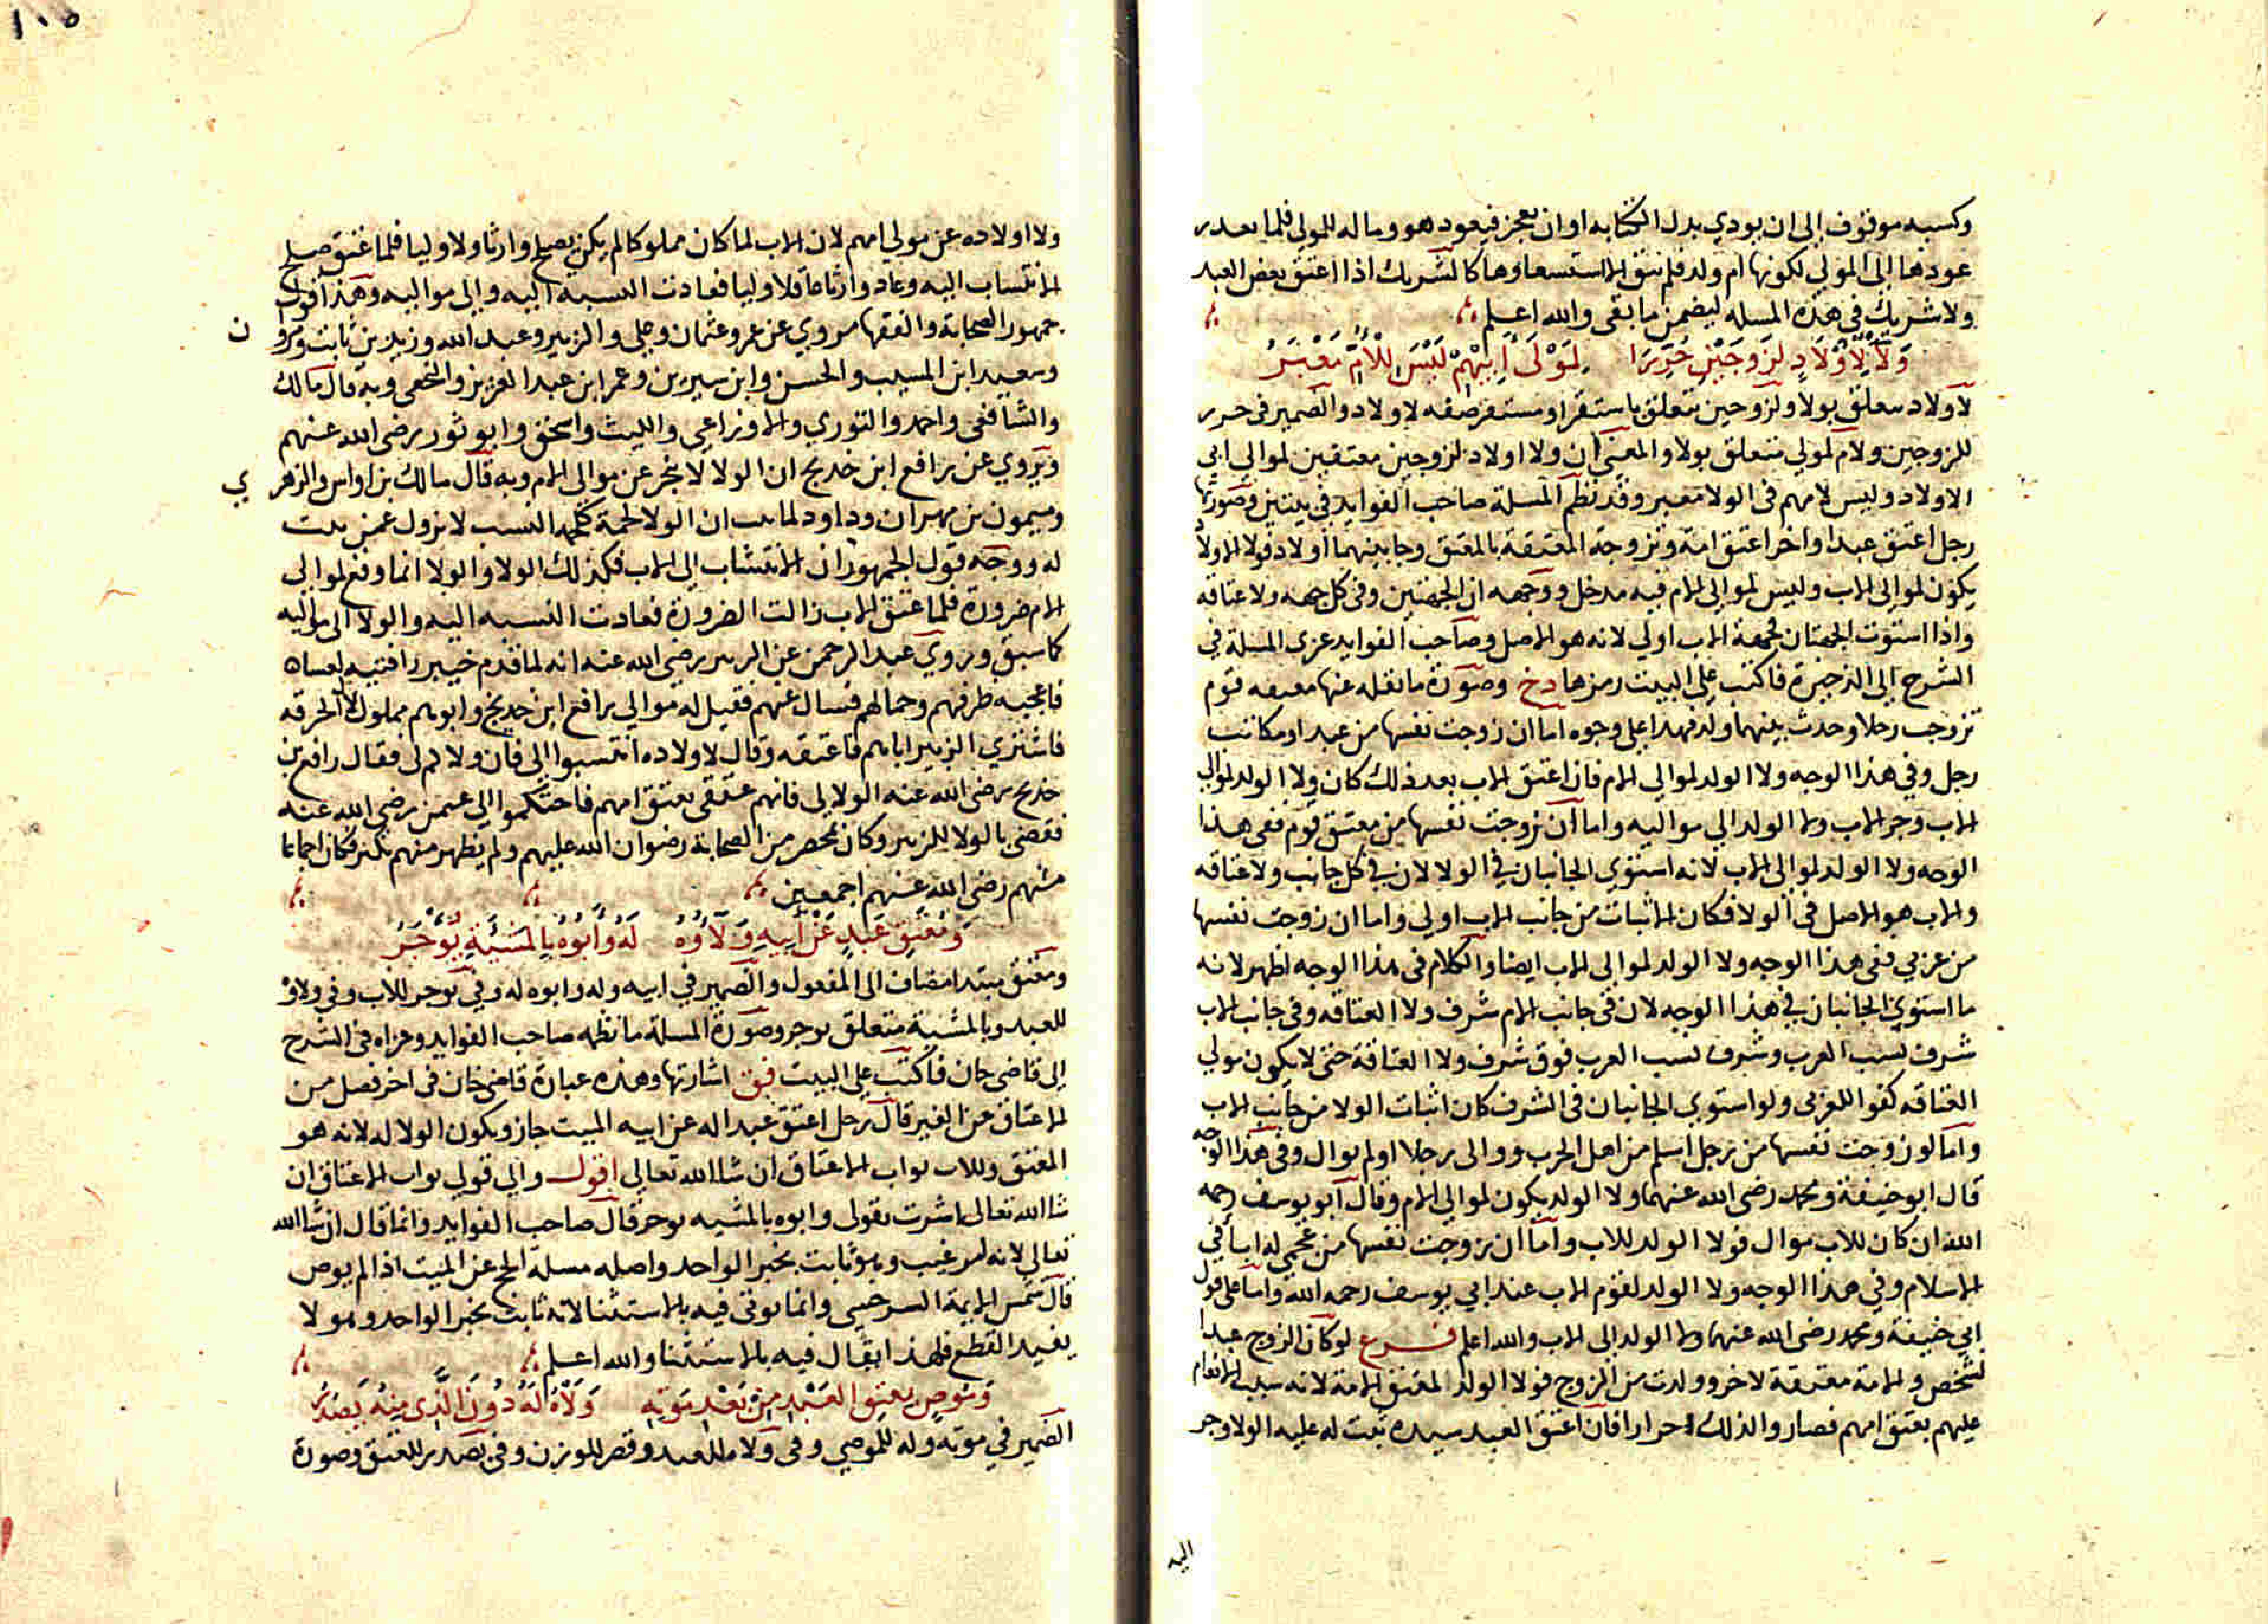 وكسبه موقوف إلى ان يودي بدل الكتابه او ان يعجز فيعود هو وما له للمولى فلما تعدر
عودها الى المولى لكونها ام ولد فلم يبق الا استسعاوها كالشريك اذا اعتق بعض العبد
ولا شريك في هذه المسله ليضمن ما بقى والله اعلم
وَلَا لِأَوْلَادٍ لِزَوجَيْنِ حُرِّرَا لِمَوْلَى أَبِيْهِمْ لَيْسَ لِلْأُمِّ مَعْبَرُ
لاولاد متعلق بولا ولزوجين متعلق باستقر او مستقر صفه لاولاد والضمير في حرر
للزوجين ولام لمولى متعلق بولا والمعنى ان ولا اولاد لزوجين معتقين لموالي ابي
الاولاد وليس لامهم في الولا معبر وقد نظم المسلة صاحب الفوايد في بيتين وصورتها
رجل اعتق عبدا واخر اعتق امة وتزوجة المعتقة بالمعتق وجا بينهما أولاد فولا الاولاد
يكون لموالى الاب وليس لموالى الام فيه مدخل ووجهه ان الجهتين وفى كل جهه ولا عتاقه
واذا استوت الجهتان فجهة الاب اولي لانه هو الاصل وصاحب الفوايد عزى المسلة في
الشرح الى الذخيرة فاكتب على البيت رمزها دخ وصورة ما نقله عنها معتقه قوم
تزوجت رجلا وحدث بينهما ولد فهدا على وجوه اما ان زوجت نفسها من عبد او مكاتب
رجل وفي هذا الوجه ولا الولد لموالي الام فان اعتق الاب بعد ذلك كان ولا الولد لموالي
الاب وجر الاب ولا الولد الى مواليه واما ان زوجت نفسها من معتق قوم ففى هذا
الوجه ولا الولد لموالى الاب لانه استوى الجانبان في الولا لان في كل جانب ولا عتاقه
والاب هو الاصل في الولا فكان الاثبات من جانب الاب اولى واما ان زوجت نفسها
من عربي ففى هذا الوجه ولا الولد لموالى الاب ايضا والكلام فى هذا الوجه اظهر لانه
ما استوى الجانبان في هذا الوجه لان فى جانب الام شرف ولا العتاقه وفى جانب الاب
شرف نسب العرب وشرف نسب العرب فوق شرف ولا العتاقة حتى لا يكون مولى
العتاقه كفوا للعربى ولو استوى الجانبان فى الشرف كان اثبات الولا من جانب الاب
واما لو زوجت نفسها من رجل اسلم من اهل الحرب ووالى رجلا او لم يوال وفى هذا الوجه
قال ابو حنيفة ومحمد رضى الله عنهما ولا الولد يكون لموالي الام وقال ابو يوسف رحمه
الله ان كان للاب موال فولا الولد للاب واما ان زوجت نفسها من عجمى له ابا في
الاسلام وفي هذا الوجه ولا الولد لقوم الاب عند ابي يوسف رحمه الله واما على قول
ابي حنيفة ومحمد رضى الله عنهما ولا الولد الى الاب والله اعلم فرع لو كان الزوج عبدا
لشخص والامة معتقة لاخر وولدت من الزوج فولا الولد لمعتق الامة لانه سبب الانعام
عليهم بعتق امهم فصاروا لذلك احرارا فان اعتق العبد سيده تبت له عليه الولا وجر
اليه
١٠٥
ولا اولاده عن مولي امهم لان الاب لما كان مملوكا لم يكن يصلح وارثا ولا وليا فلما عتق صلح
الانتساب اليه وعاد وارثا عاقلا وليا فعادت النسبه اليه والي مواليه وهذا قول
جمهور الصحابة والفقها مروي عن عمر وعثمان وعلي والزبير وعبد الله وزيد بن ثابت ومرو ن
وسعيد ابن المسيب والحسن وابن سيرين وعمر ابن عبد العزيز والنخعى وبه قال مالك
والشافعى واحمد والثوري والاوزاعي والليث واسحق وابو ثور رضى الله عنهم
ويروي عن رافع ابن خديج ان الولا لا ينجر عن موالى الام وبه قال مالك بن اوس والزهر ي
وميمون بن مهران وداود لما ثبت ان الولا لحمة كلحمة النسب لا يزول عمن يثبت
له ووجه قول الجمهور ان الانتساب إلى الاب فكذلك الولا والولا انما وقع لموالى
الام ضرورة فلما عتق الاب زالت الضرورة فعادت النسبه اليه والولا الى مواليه
كما سبق وروي عبد الرحمن عن الزبير رضى الله عنه انه لما قدم خيبر را فتيه لعسا
فاعجبه ظرفهم وجمالهم فسال عنهم فقيل له موالي رافع ابن خديج وابوهم مملوك لال الحرقه
فاشترى الزبير اباهم فاعتقه وقال لاولاده انتسبوا الى فان ولا كم لى فقال رافع بن
خديج رضى الله عنه الولا لى فانهم عتقى بعتق امهم فاحتكموا الى عثمن رضى الله عنه
فقضى بالولا للزبير وكان بمحضر من الصحابة رضوان الله عليهم ولم يظهر منهم نكير فكان اجماعا
منهم رضى الله عنهم اجمعين
وَمُعْتِق عَبْدٍ عَنْ أَبِيهِ وَلَاؤُهُ لَهُ وَأَبُوهُ بِالْمَشِيَّةِ يُوْجَرُ
ومعتق مبتدا مضاف الى المفعول والضمير في ابيه وله وابوه له وفي يوجر للاب وفي ولاؤ
للعبد وبالمشية متعلق يوجر وصورة المسلة ما نظمه صاحب الفوايد وعزاه فى الشرح
إلى قاضى خان فاكتب على البيت فق اشارتها وهذه عبارة قاضى خان فى اخر فصل من
الاعتاق عن الغير قال رجل اعتق عبدا له عن ابيه الميت جاز ويكون الولا له لانه هو
المعتق وللاب ثواب الاعتاق ان شا الله تعالى اقول والي قولي ثواب الاعتاق ان
شا الله تعالى اشرت بقولى وابوه بالمشيه يوجر قال صاحب الفوايد وانما قال ان شا الله
تعالى لانه امر غيب وهو ثابت بخبر الواحد واصله مسلة الحج عن الميت اذا لم يوص
قال شمس الايمة السرخسي وانما يوتى فيه بالاستثنا لانه ثابت بخبر الواحد وهو لا
يفيد القطع فلهذا يقال فيه بالاستثنا والله اعلم
وَمُوصٍ بِعِتْقِ العَبْدِ مِنْ بَعْدِ مَوْتِهِ وَلَاهُ لَهُ دُونَ الَّذِى مِنْهُ يَصْدُرُ
الضمير في موته وله للموصي وفى ولاه للعبد وقصر للوزن وفى يصدر للعتق وصورة